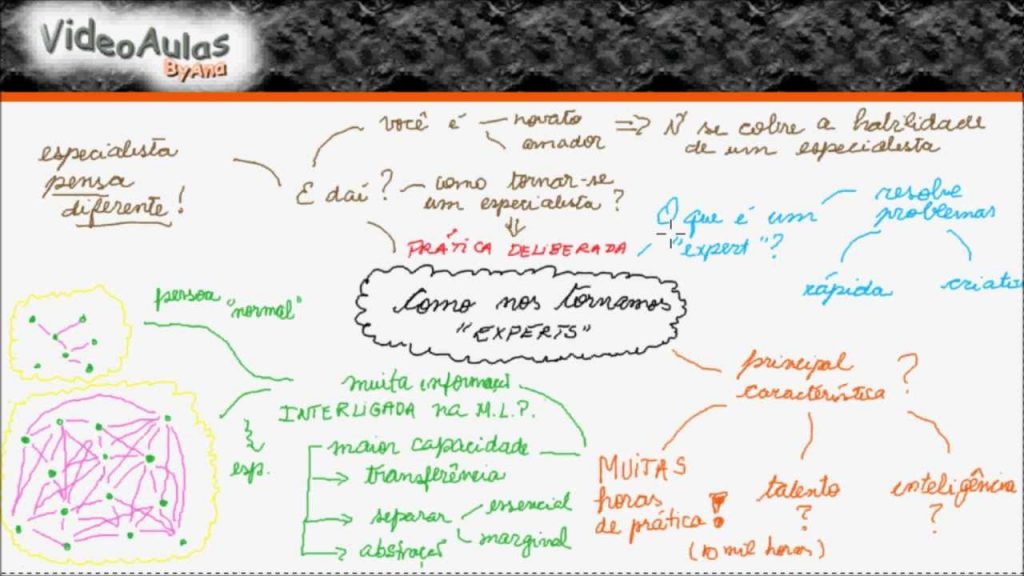 VideoAulas
ByAna
especialista
pensa
diferente!
você é
novato
amador
=> Ñ se cobre a habilidade
de um especialista
E daí?
como tornar-se
um especialista?
PRÁTICA DELIBERADA
O que é um
"expert"?
resolve
problemas
rápida
Como nos tornamos
"EXPERTS"
pessoa "normal"
muita informaç
INTERLIGADA na M.L.P.
esp.
maior capacidade
transferência
separar
essencial
marginal
abstraç
principal
característica
?
MUITAS
horas
de prática!
(10 mil horas)
talento
?
inteligência
?